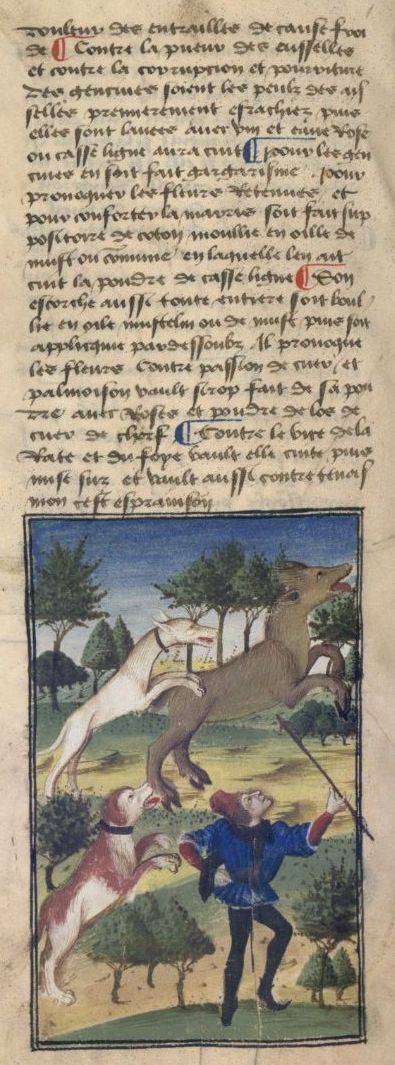 douleur des entrailles de cause froi
de ¶ Contre la pueur des esselles
et contre la corrupcion et pourriture
des gencives soient les peulz des ais
selles premierement esrachiez puis
elles sont lavees avec vin et eaue rose
ou casse ligne aura cuit ¶ pour les gen
cives en soit fait gargarisme . pour
provoquer les fleurs retenues et
pour conforter la marris soit fait sup
positoire de coton moullie en oille de
musc ou comune en laquelle len ait
cuit la pouldre de casse ligne ¶ Son
escorche aussi toute entiere soit boul
lie en oile mustelin ou de musc puis soit
applicquie par dessoubz . Il provoque
les fleurs Contre passion de cuer et
palmoison vault sirop fait de sa poul
dre avec roses et pouldre de los de
cuer de cherf ¶ Contre le vice de la
Rate et du foye vault elle cuite puis
mise sur et vault aussi contre tenas
mon cest